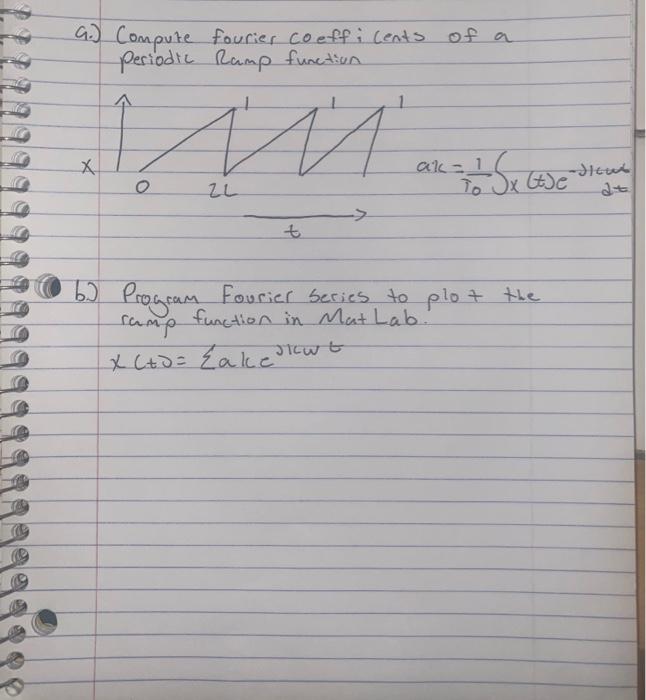 a.) Compute fourier coefficents of a
periodic Ramp function
1 1 1
x
0 2L
t
ak = 1/T0 ∫x(t)e^-jkwt dt
b.) Program Fourier Series to plot the
ramp function in MatLab.
x(t) = Σake^jkwt